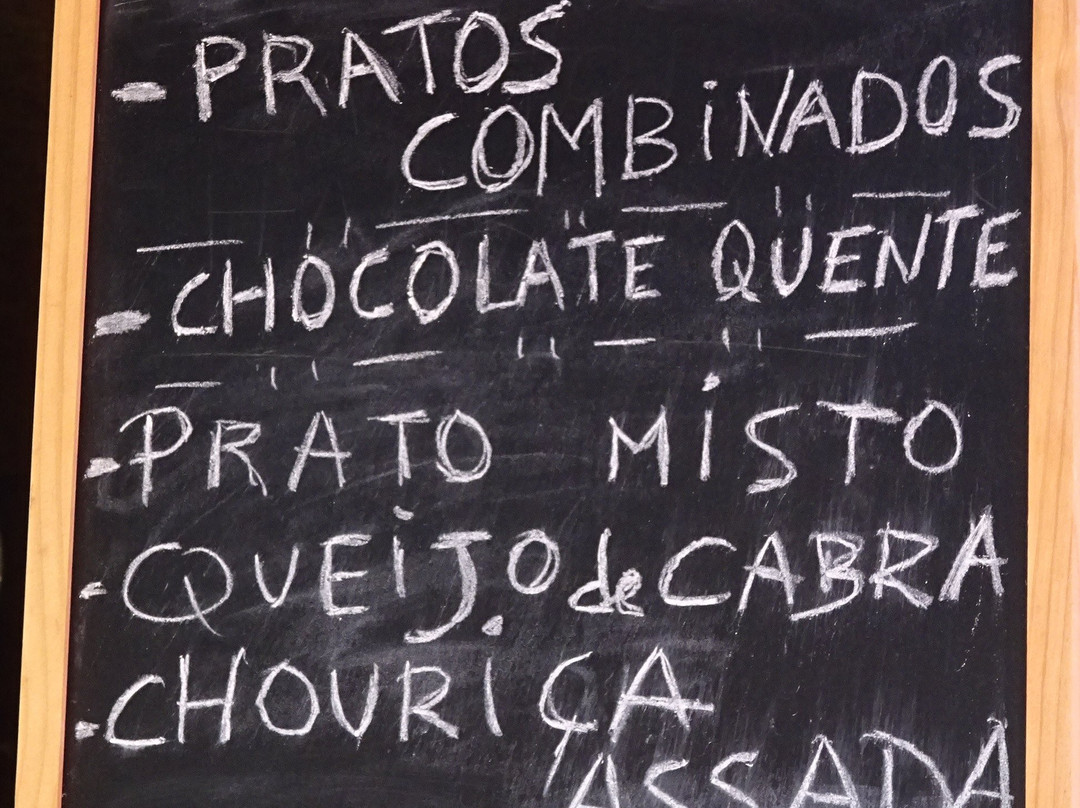 - PRATOS
COMBiNADOS
- CHOCOLATE QUENTE
- PRATO MiSTO
- QUEiJO de CABRA
- CHOURiÇA
ASSADA